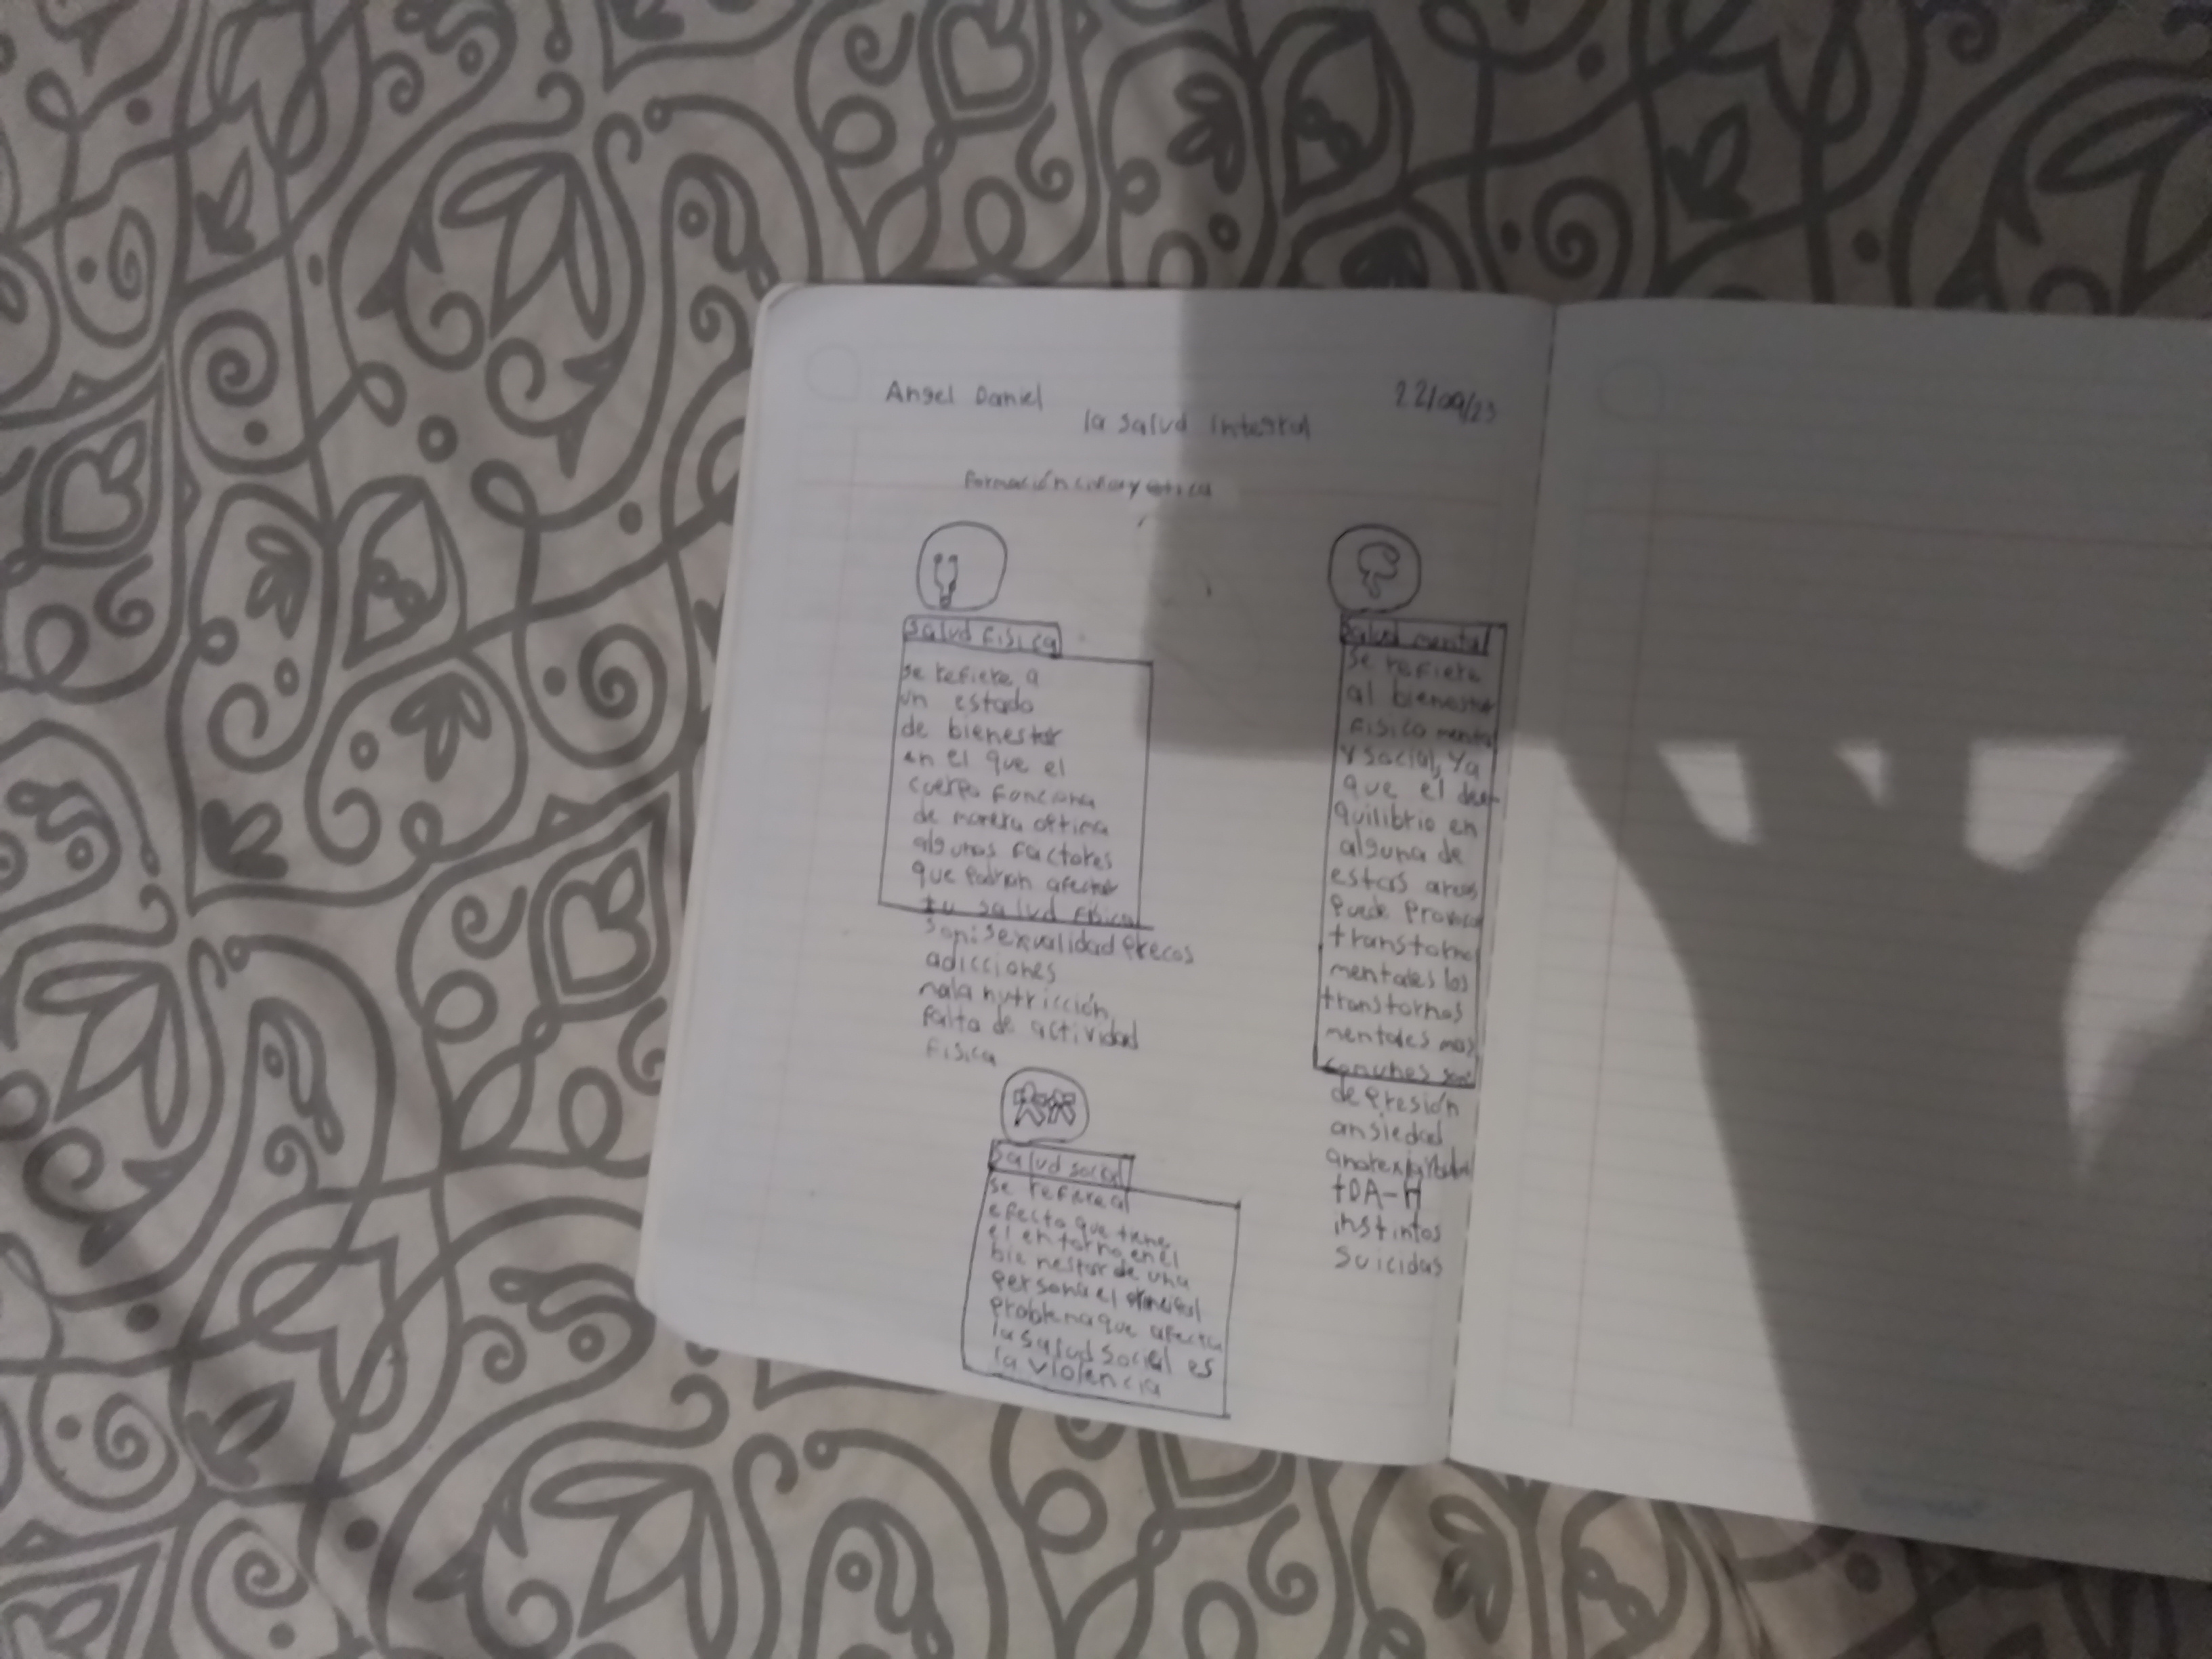 Angel Daniel
22/09/23
la salud integral
Formación civica y etica
Salud Fisica
se refiere a
un estado
de bienestar
en el que el
cuerpo funciona
de manera ottima
algunos factores
que podrian afectar
tu salud fisica
son: sexualidad precos
adicciones
mala nutricción
falta de actividad
Fisica
Salud mental
se refiere
al bienestar
Fisico mental
y social, ya
que el dese
quilibrio en
alguna de
estas areas
puede provocar
transtornos
mentales los
transtornos
mentales mas
comunes son:
depresión
ansiedad
anorexia y bulimi
tDA-H
instintos
suicidas
Salud social
se refiere al
efecto que tiene
el entorno en el
bienestar de una
persona el principal
problema que afecta
la salud social es
la violencia